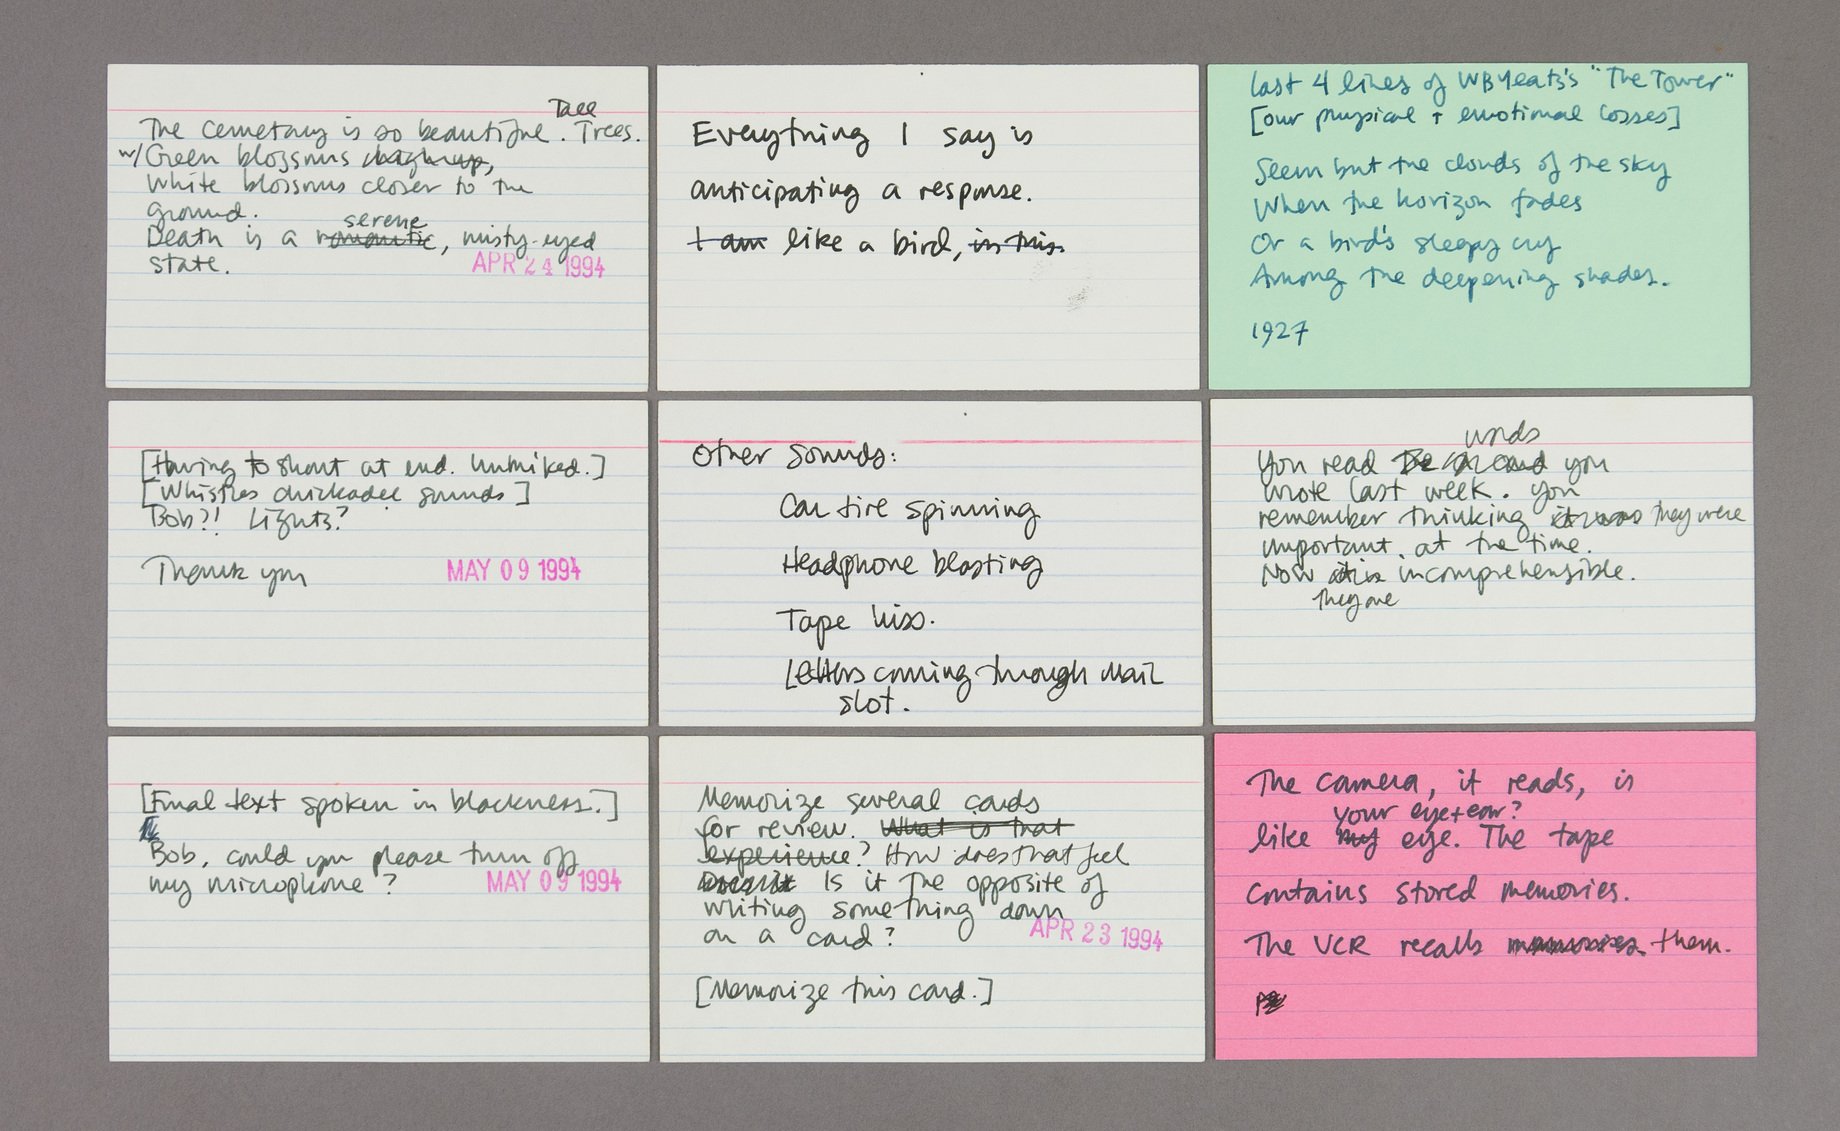 Tall
The cemetary is so beautiful. Trees.
w/ Green blossoms
White blossoms closer to the
ground.
serene
Death is a romantic, misty-eyed
state.
APR 24 1994
Everything I say is
anticipating a response.
I am like a bird, in this.
last 4 lines of WB Yeats's "The Tower"
[our physical + emotional losses]
Seem but the clouds of the sky
When the horizon fades
Or a bird's sleepy cry
Among the deepening shades.
1927
[Having to shout at end. Unmiked.]
[Whistles chickadee sounds]
Bob?! Lights?
Thank you
MAY 09 1994
Other Sounds:
Car tire spinning
Headphone blasting
Tape hiss.
Letters coming through mail
slot.
words
You read you
wrote last week. You
remember thinking it was they were
important. at the time.
Now it is incomprehensible.
They are
[Final text spoken in blackness.]
Bob, could you please turn off
my microphone?
MAY 09 1994
Memorize several cards
for review. What is that
experience? How does that feel
Is it the opposite of
writing something down
on a card?
APR 23 1994
[Memorize this card.]
The camera, it reads, is
your eye+ear?
like my eye. The tape
contains stored memories.
The VCR recalls them.